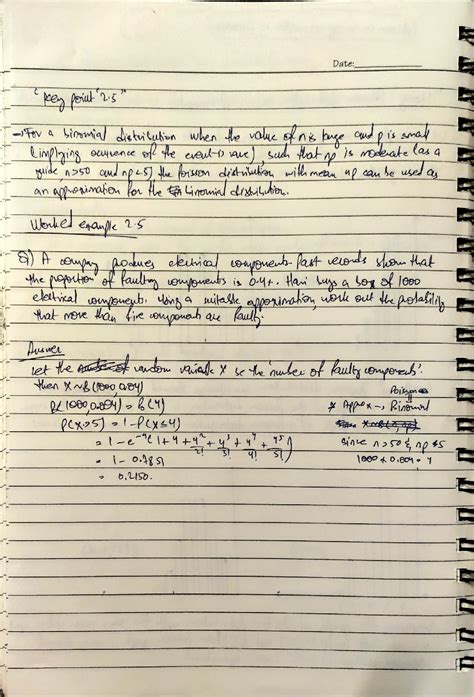 Date:
"Key point 2.5"
→ For a binomial distribution when the value of n is large and p is small
(implying occurence of the event is rare), such that np is moderate (as a
guide n>50 and np<5) the poission distribution with mean np can be used as
an approximation for the binomial distribution.
Worked example 2.5
Q) A company produces electrical components. Past records show that
the proportion of faulty components is 0.4%. Hani buys a box of 1000
electrical components. Using a suitable approximation, work out the probability
that more than five components are faulty.
Answer
let the random variable X be the 'number of faulty components'.
then X~B(1000,0.004)
B(1000,0.004) ≈ Po(4)
P(X>5) = 1-P(X≤4)
= 1-e⁻⁴(1+4+4²/2!+4³/3!+4⁴/4!+4⁵/5!)
= 1-0.7851
= 0.2150.
Poisson
* Approx → Binomial
since n>50 & np≤5
1000 × 0.004 = 4